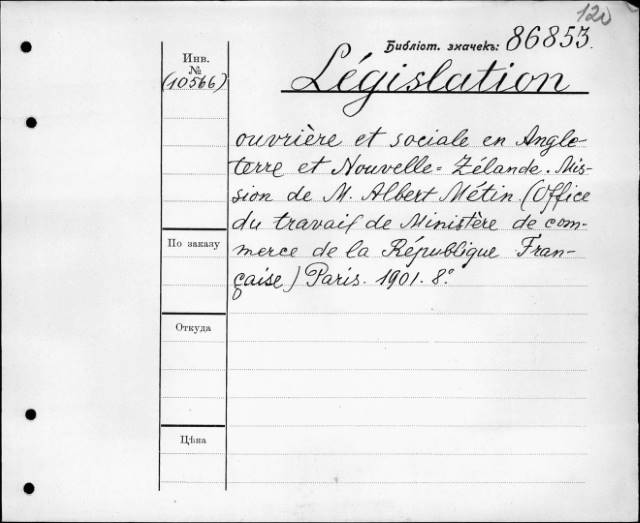 120
Библіот. значекъ: 86853.
Инв.
№
(10566)
Législation
ouvrière et sociale en Angle-
terre et Nouvelle-Zélande. Mis-
sion de M. Albert Métin (Office
du travail de Ministère de com-
merce de la République Fran-
çaise) Paris. 1901. 8.°
По заказу
Откуда
Цѣна